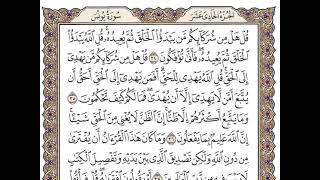 الجُزْءُ الحَادِي عَشَرَ سُورَةُ يُونُسَ
قُلْ هَلْ مِن شُرَكَآئِكُم مَّن يَبْدَؤُاْ ٱلْخَلْقَ ثُمَّ يُعِيدُهُۥ قُلِ ٱللَّهُ يَبْدَؤُاْ
ٱلْخَلْقَ ثُمَّ يُعِيدُهُۥ فَأَنَّىٰ تُؤْفَكُونَ ٣٤ قُلْ هَلْ مِن شُرَكَآئِكُم مَّن يَهْدِىٓ
إِلَى ٱلْحَقِّ قُلِ ٱللَّهُ يَهْدِى لِلْحَقِّ أَفَمَن يَهْدِىٓ إِلَى ٱلْحَقِّ أَحَقُّ أَن
يُتَّبَعَ أَمَّن لَّا يَهِدِّىٓ إِلَّآ أَن يُهْدَىٰ فَمَا لَكُمْ كَيْفَ تَحْكُمُونَ ٣٥
وَمَا يَتَّبِعُ أَكْثَرُهُمْ إِلَّا ظَنًّا إِنَّ ٱلظَّنَّ لَا يُغْنِى مِنَ ٱلْحَقِّ شَيْـًٔا
إِنَّ ٱللَّهَ عَلِيمٌۢ بِمَا يَفْعَلُونَ ٣٦ وَمَا كَانَ هَٰذَا ٱلْقُرْءَانُ أَن يُفْتَرَىٰ
مِن دُونِ ٱللَّهِ وَلَٰكِن تَصْدِيقَ ٱلَّذِى بَيْنَ يَدَيْهِ وَتَفْصِيلَ ٱلْكِتَٰبِ
لَا رَيْبَ فِيهِ مِن رَّبِّ ٱلْعَٰلَمِينَ ٣٧ أَمْ يَقُولُونَ ٱفْتَرَىٰهُ قُلْ فَأْتُواْ